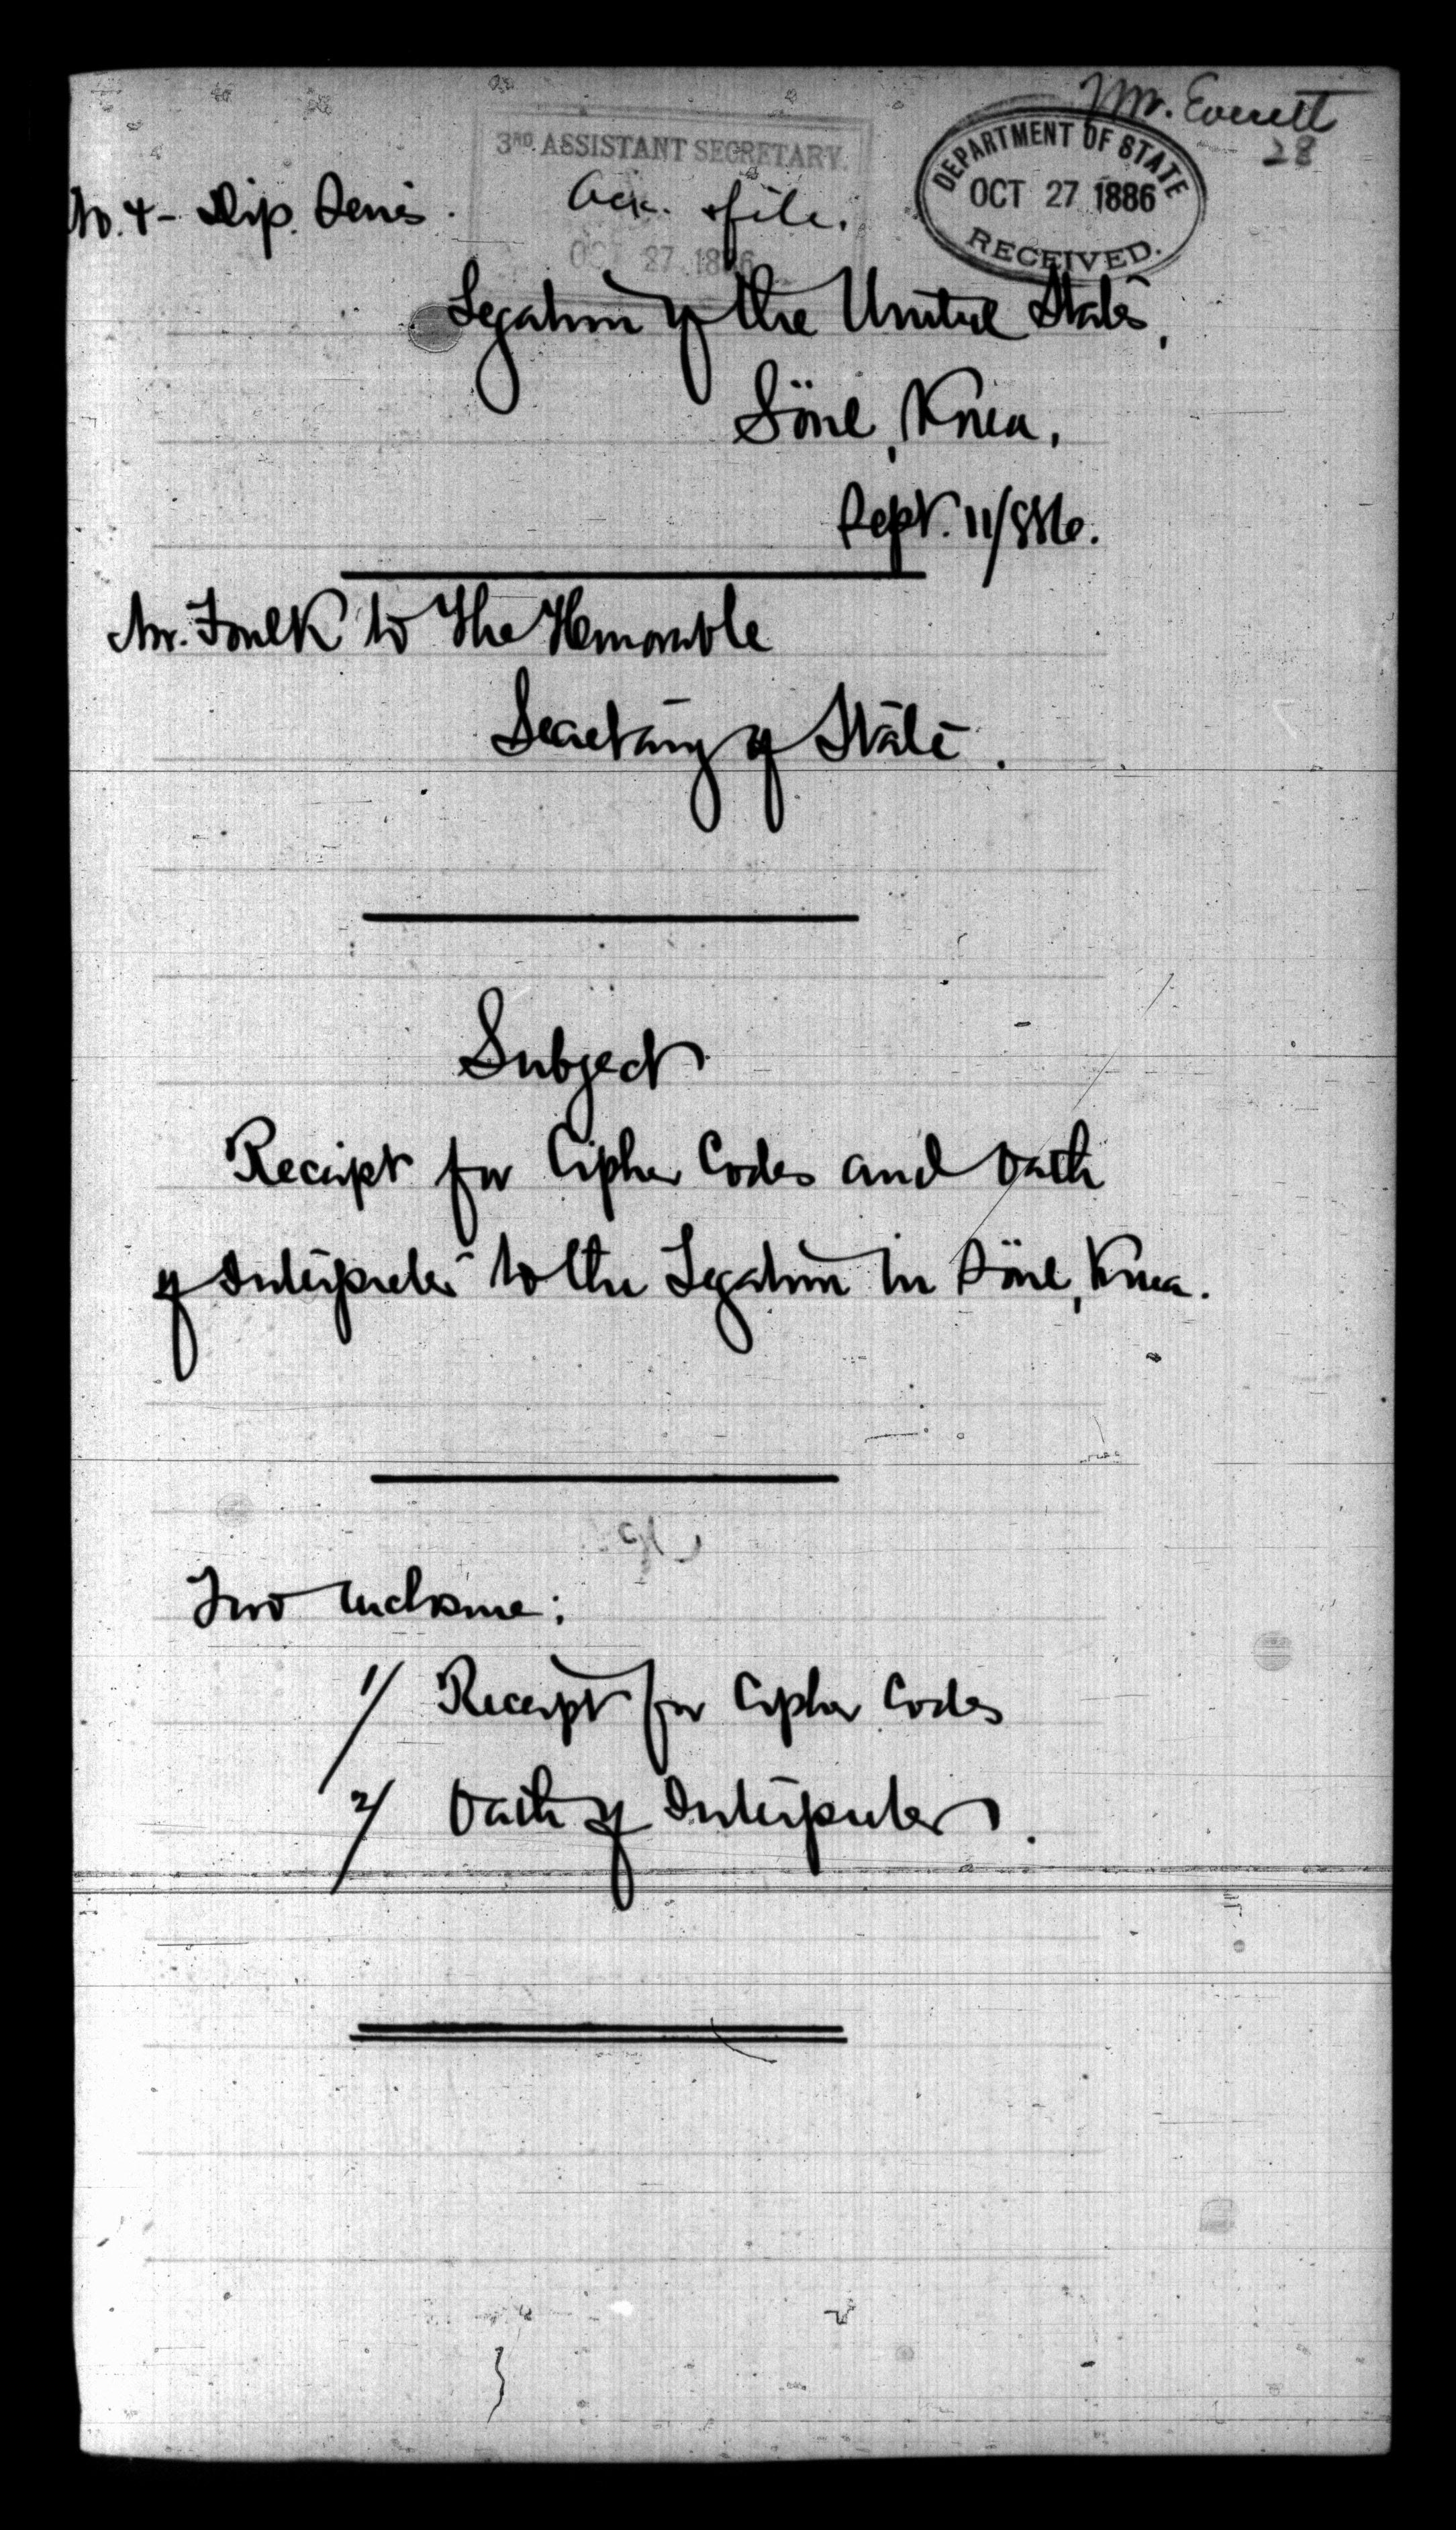 Mr. Everett
28
3RD. ASSISTANT SECRETARY.
OCT 27 1886
DEPARTMENT OF STATE
OCT 27 1886
RECEIVED.
No. 4 - Dip. Series.
Ack. & file.
Legation of the United States,
Söul, Korea,
Sept. 11/886.
Mr. Foulk to The Honorable
Secretary of State.
Subject
Receipt for Cipher Codes and Oath
of Interpreter to the Legation in Söul, Korea.
Two enclosure:
1/ Receipt for Cipher Codes
2/ Oath of Interpreter.